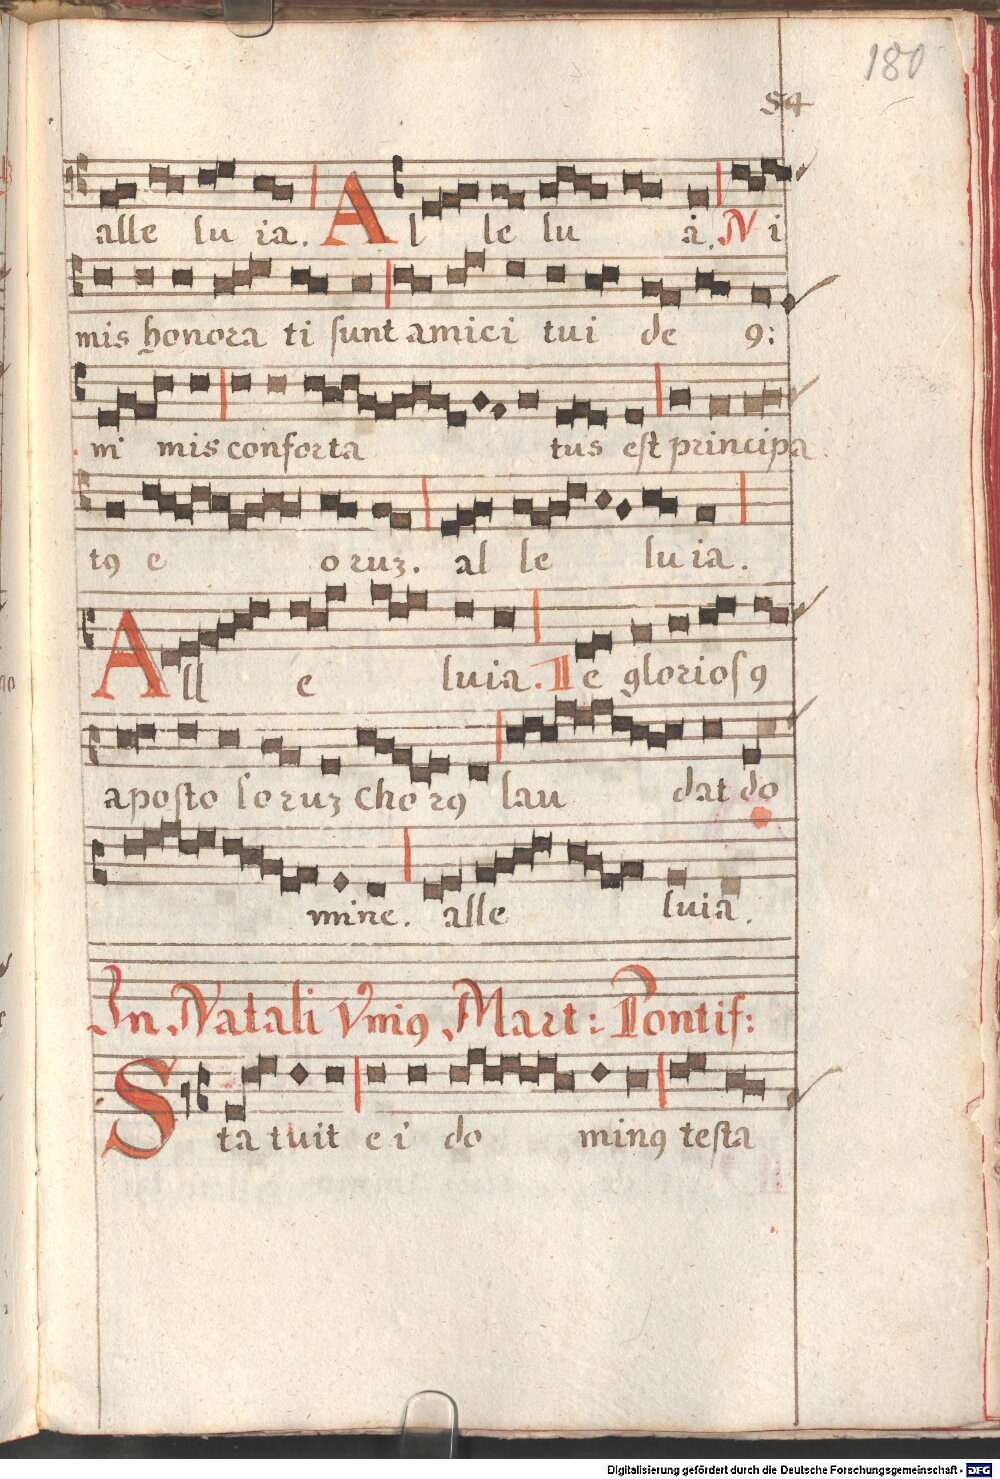 180
54
alle lu ia. Al le lu a. Ni
mis honora ti sunt amici tui de 9:
ni mis conforta tus est principa
t9 e oruz. al le lu ia.
All e luia. Te glorios9
aposto loruz choR9 lau dat do
mine. alle luia.
In Natali Vni9 Mart: Pontif:
Sta tuit ei do min9 testa
Digitalisierung gefördert durch die Deutsche Forschungsgemeinschaft - DFG